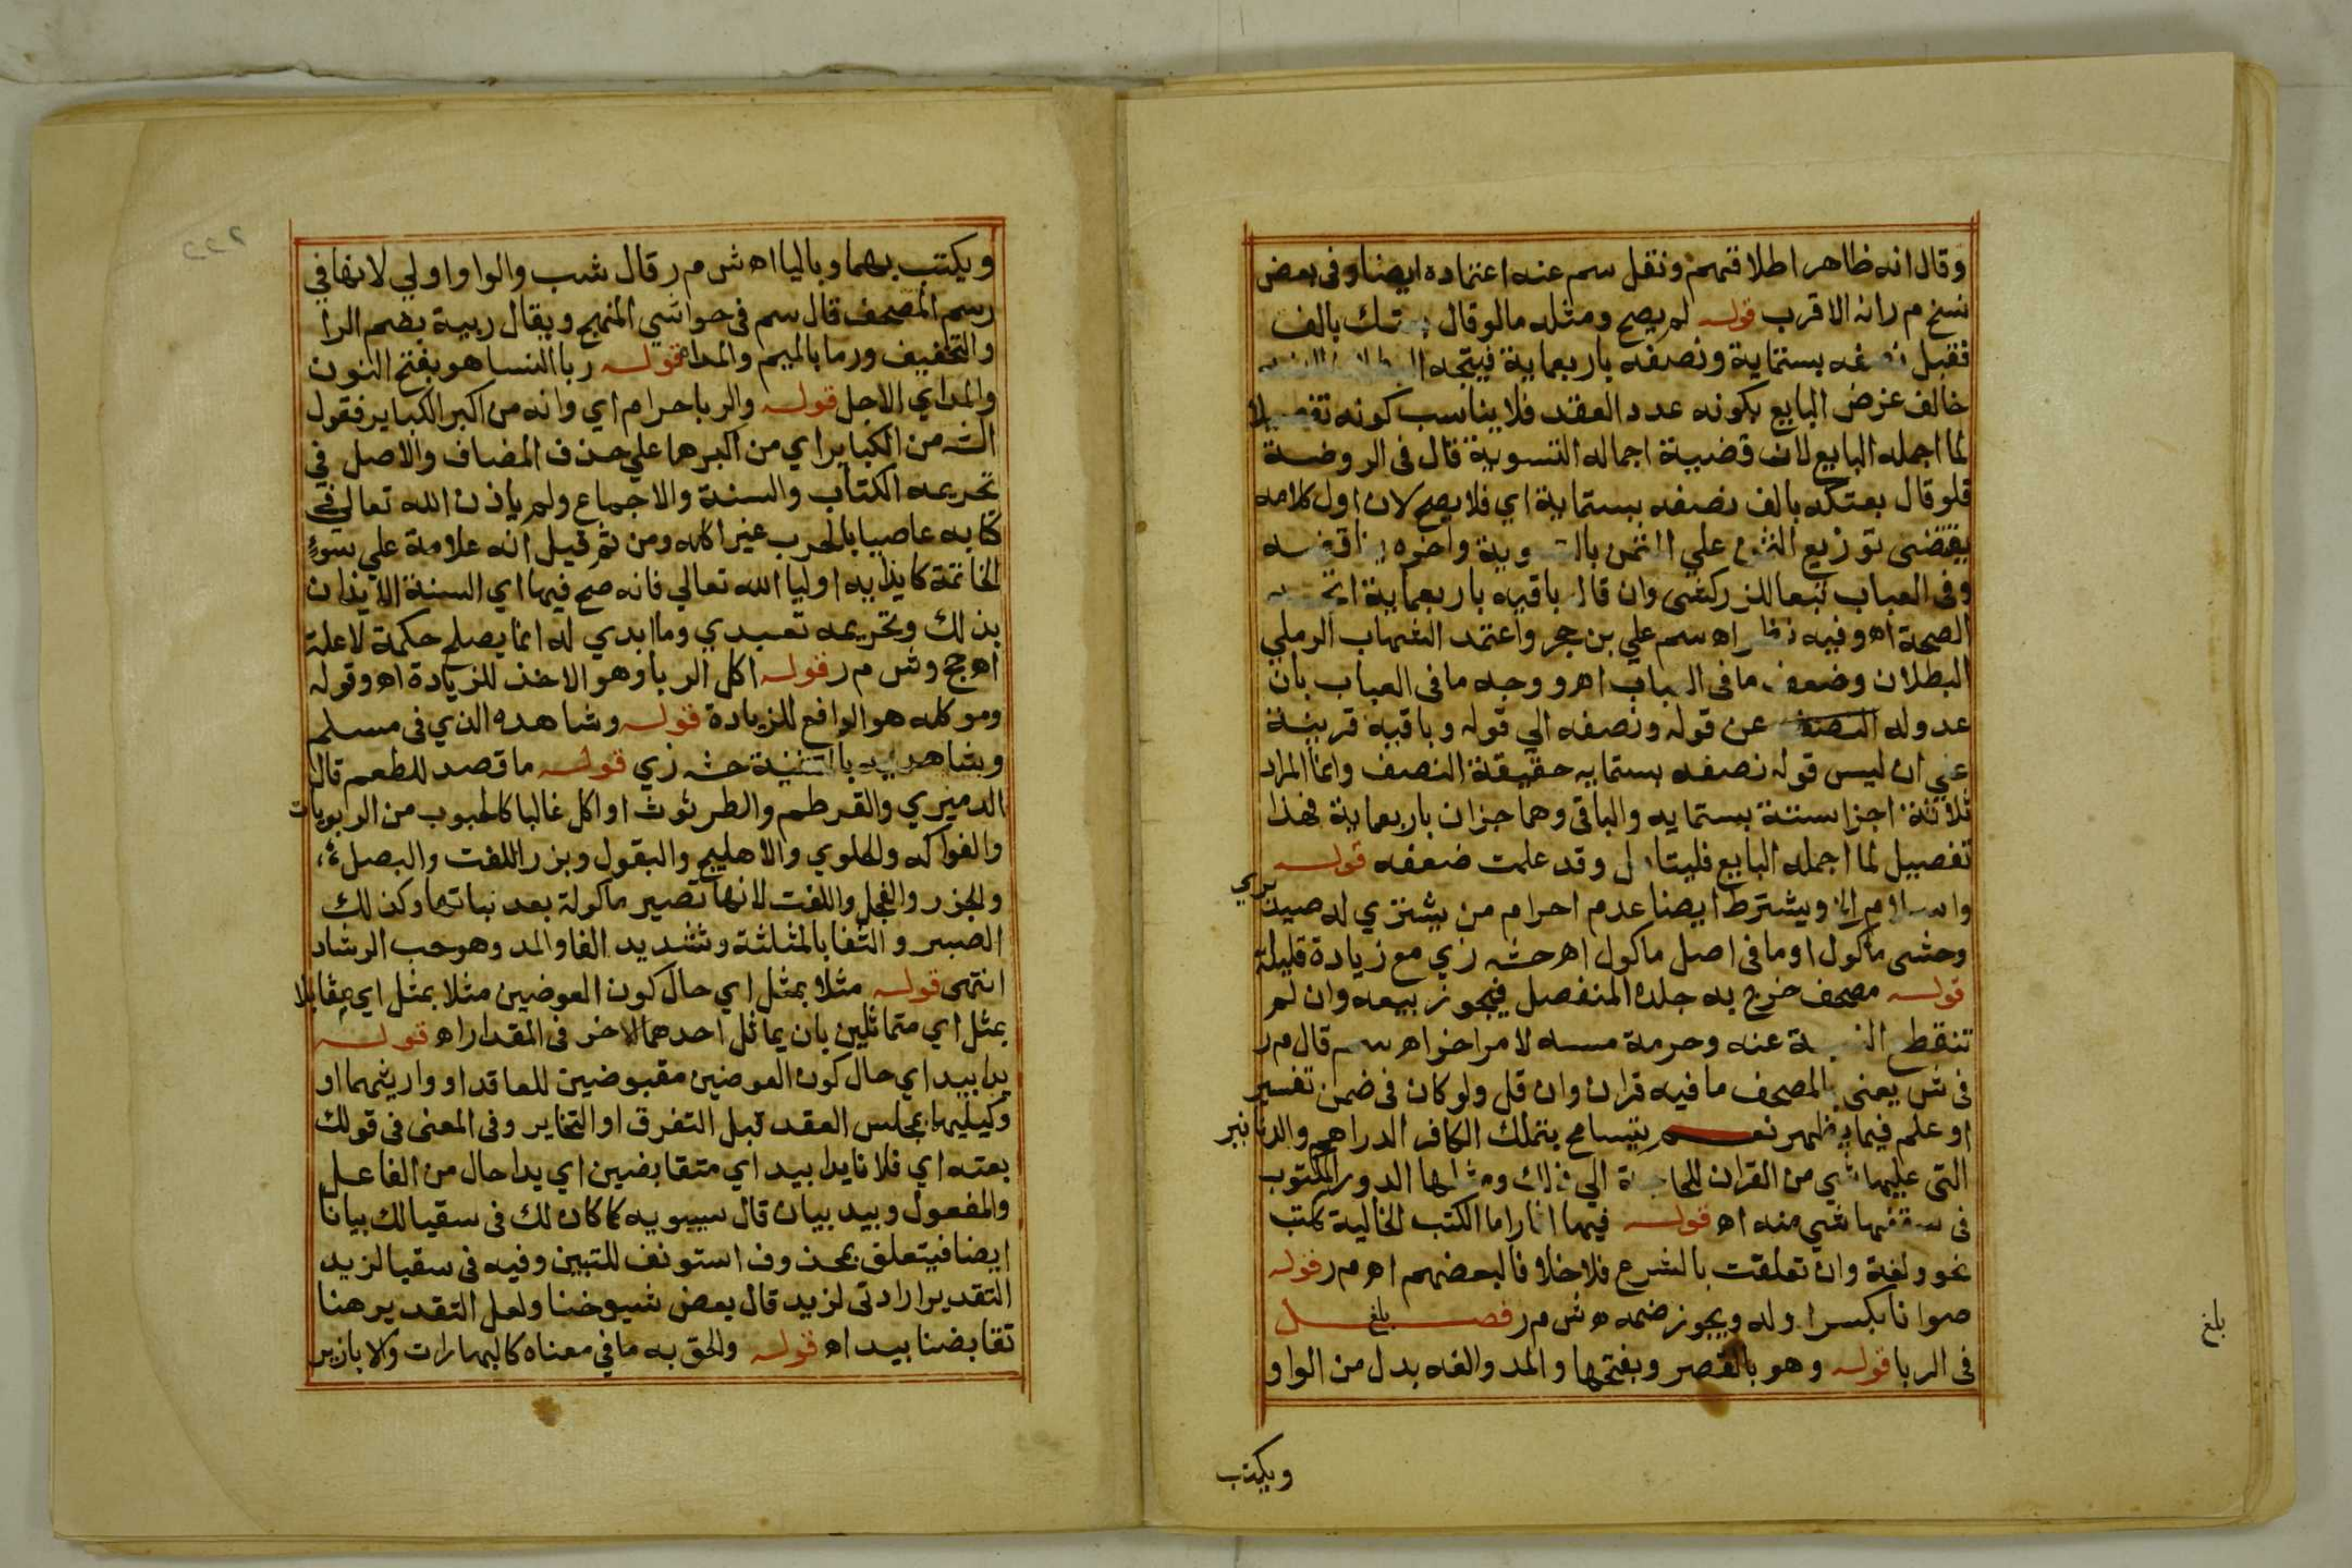 وقال انه ظاهر اطلاقهم ونقل سم عنه اعتماده ايضا وفى بعض
نسخ م ر انه الاقرب قوله لم يصح ومثله مالو قال بعتك بالف
فقبل نصفه بستماية ونصفه باربعماية فيتجه
خالف غرض البايع بكونه عدد العقد فلا يناسب كونه تفصيلا
لما اجمله البايع لان قضية اجماله التسوية قال فى الروضة
فلو قال بعتكه بالف نصفه بستماية اي فلا يصح لان اول كلامه
يقتضى توزيع الثمن علي المثمن بالتسوية واخره يناقضه
وفى العباب تبعا للزركشى وان قال باقيه باربعماية اتجه
الصحة اه وفيه نظر اه سم علي بن حجر واعتمد الشهاب الرملي
البطلان وضعف ما فى العباب اه ووجه ما فى العباب بان
عدوله عن قوله ونصفه الي قوله وباقيه قرينة
علي ان ليس قوله نصفه بستمايه حقيقة النصف وانما المراد
ثلاثة اجزا ستة بستمايه والباقى وهما جزان باربعماية فهذا
تفصيل لما اجمله البايع فليتامل وقد علمت ضعفه قوله
واسلام الخ ويشترط ايضا عدم احرام من يشتري له صيد بري
وحشى ماكول او ما فى اصل ماكول اه حش زي مع زيادة قليلة
قوله مصحف خرج به جلده المنفصل فيجوز بيعه وان لم
تنقطع النسبة عنه وحرمة مسه لامر اخر اه سم قال م ر
فى ش يعنى بالمصحف ما فيه قران وان قل ولو كان فى ضمن تفسير
او علم فيما يظهر نعم يتسامح بتملك الكافر الدراهم والدنانير
التى عليها شي من القران للحاجة الي ذلك ومثلها الدور المكتوب
فى سقفها شي منه اه قوله فيها اثار اما الكتب الخالية ككتب
نحو ولغة وان تعلقت بالشرع فلا خلافا لبعضهم اه م ر قوله
صوانا بكسر اوله ويجوز ضمه ه ش م ر فصــل بلغ
فى الربا قوله وهو بالقصر وبفتحها والمد والفه بدل من الواو
ويكتب
بلغ
ويكتب بهما وباليا اه ش م ر قال شب والواو اولي لانها في
رسم المصحف قال سم فى حواشي المنهج ويقال ربية بضم الرا
والتخفيف ورما بالميم والمد اه قوله ربا النسا هو بفتح النون
والمد اي الاجل قوله والربا حرام اي وانه من اكبر الكباير فقول
الش من الكباير اي من اكبرها علي حذف المضاف والاصل في
تحريمه الكتاب والسنة والاجماع ولم ياذن الله تعالي فى
كتابه عاصيا بالحرب غير اكله ومن ثم قيل انه علامة علي سوء
الخاتمة كايذايه اوليا الله تعالي فانه صح فيها اي السنة الايذان
بذلك وتحريمه تعبدي وما ابدي له انما يصلح حكمة لا علة
اه حج وش م ر قوله اكل الربا وهو الاخذ للزيادة اه وقوله
وموكله هو الدافع للزيادة قوله وشاهده الذي فى مسلم
وشاهديه بالتثنية حش زي قوله ما قصد للطعم قال
الدميري والقرطم والطرثوث او اكل غالبا كالحبوب من الربويات
والفواكه والحلوي والاهليج والبقول وبزر اللفت والبصل
والجزر والفجل واللفت لانها تصير ماكولة بعد نباتها وكذلك
الصبر والثفا بالمثلثة وتشديد الفا والمد وهو حب الرشاد
انتهى قوله مثلا بمثل اي حال كون العوضين مثلا بمثل اي مقابلا
بمثل اي متماثلين بان يماثل احدهما الاخر فى المقدار اه قوله
يدا بيد اي حال كون العوضين مقبوضين للعاقد او وارثهما او
وكيليهما بمجلس العقد قبل التفرق او التخاير وفى المعنى فى قولك
بعته اي فلانا يدا بيد اي متقابضين اي يدا حال من الفاعل
والمفعول وبيد بيان قال سيبويه كما كان لك فى سقيا لك بيانا
ايضا فيتعلق بمحذوف استونف للتبين وفيه فى سقيا لزيد
التقدير ارادتى لزيد قال بعض شيوخنا ولعل التقدير هنا
تقابضنا بيد اه قوله والحق به ما في معناه كالبهارات والابازير